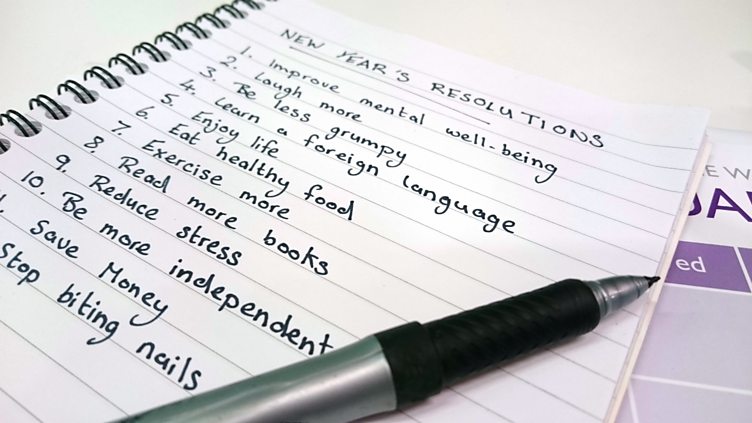 NEW YEAR'S RESOLUTIONS
1. Improve mental well-being
2. Laugh more
3. Be less grumpy
4. Learn a foreign language
5. Enjoy life
6. Eat healthy food
7. Exercise more
8. Read more books
9. Reduce stress
10. Be more independent
1. Save Money
Stop biting nails
ed